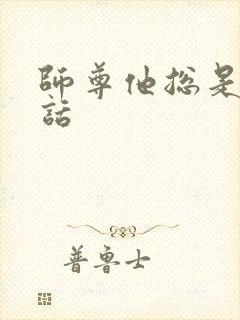 師尊他總是
話
普魯士